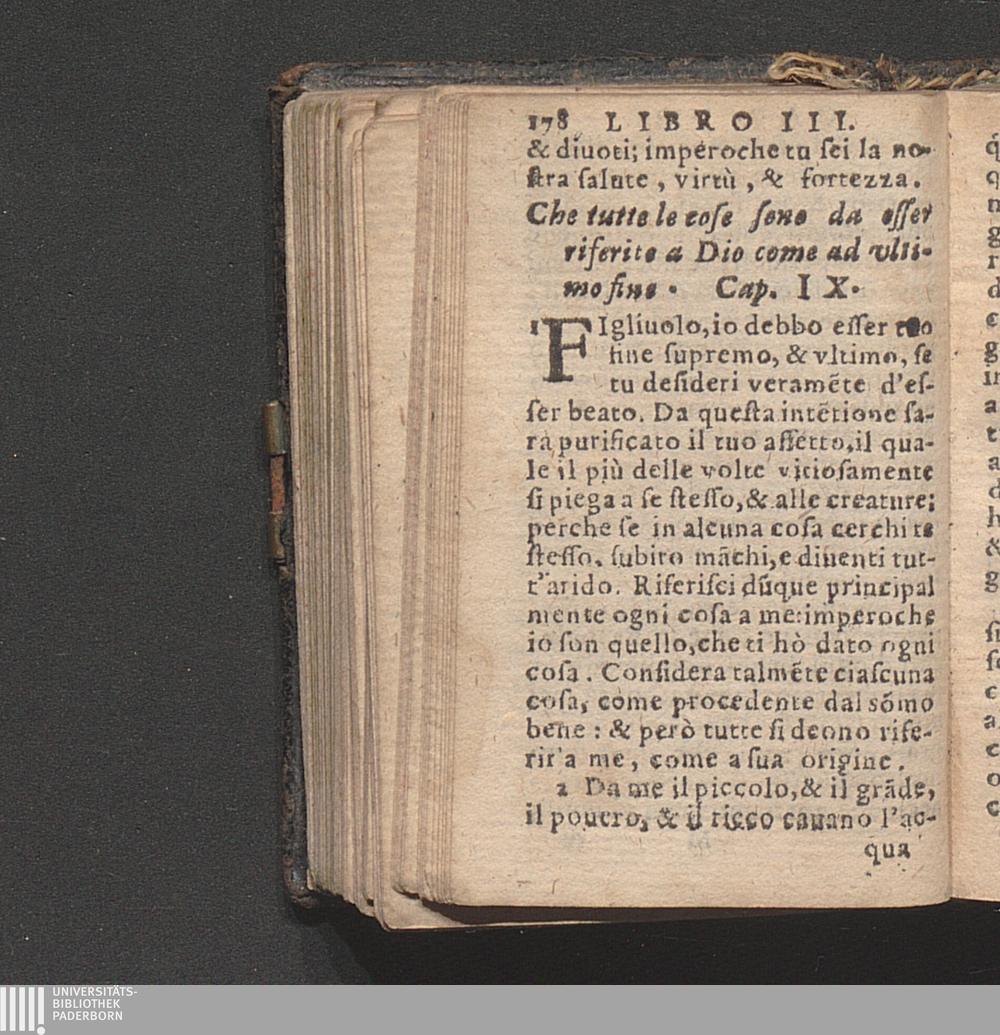 178 LIBRO III.
& diuoti; imperoche tu ſei la no-
ſtra ſalute, virtù, & fortezza.
Che tutte le coſe ſono da eſſer
riferite a Dio come ad vlti-
mo fine. Cap. IX.
1 FIgliuolo, io debbo eſſer tuo
fine ſupremo, & vltimo, ſe
tu deſideri veramẽte d'eſ-
ſer beato. Da queſta intẽtione ſa-
rà purificato il tuo affetto, il qua-
le il più delle volte vitioſamente
ſi piega a ſe ſteſſo, & alle creature;
perche ſe in alcuna coſa cerchi te
ſteſſo, ſubito mãchi, e diuenti tut-
t'arido. Riferiſci dũque principal
mente ogni coſa a me: imperoche
io ſon quello, che ti hò dato ogni
coſa. Conſidera talmẽte ciaſcuna
coſa, come procedente dal sõmo
bene: & però tutte ſi deono rife-
rir'a me, come a ſua origine.
2 Da me il piccolo, & il grãde,
il pouero, & il ricco cauano l'ac-
qua
UNIVERSITÄTS-
BIBLIOTHEK
PADERBORN